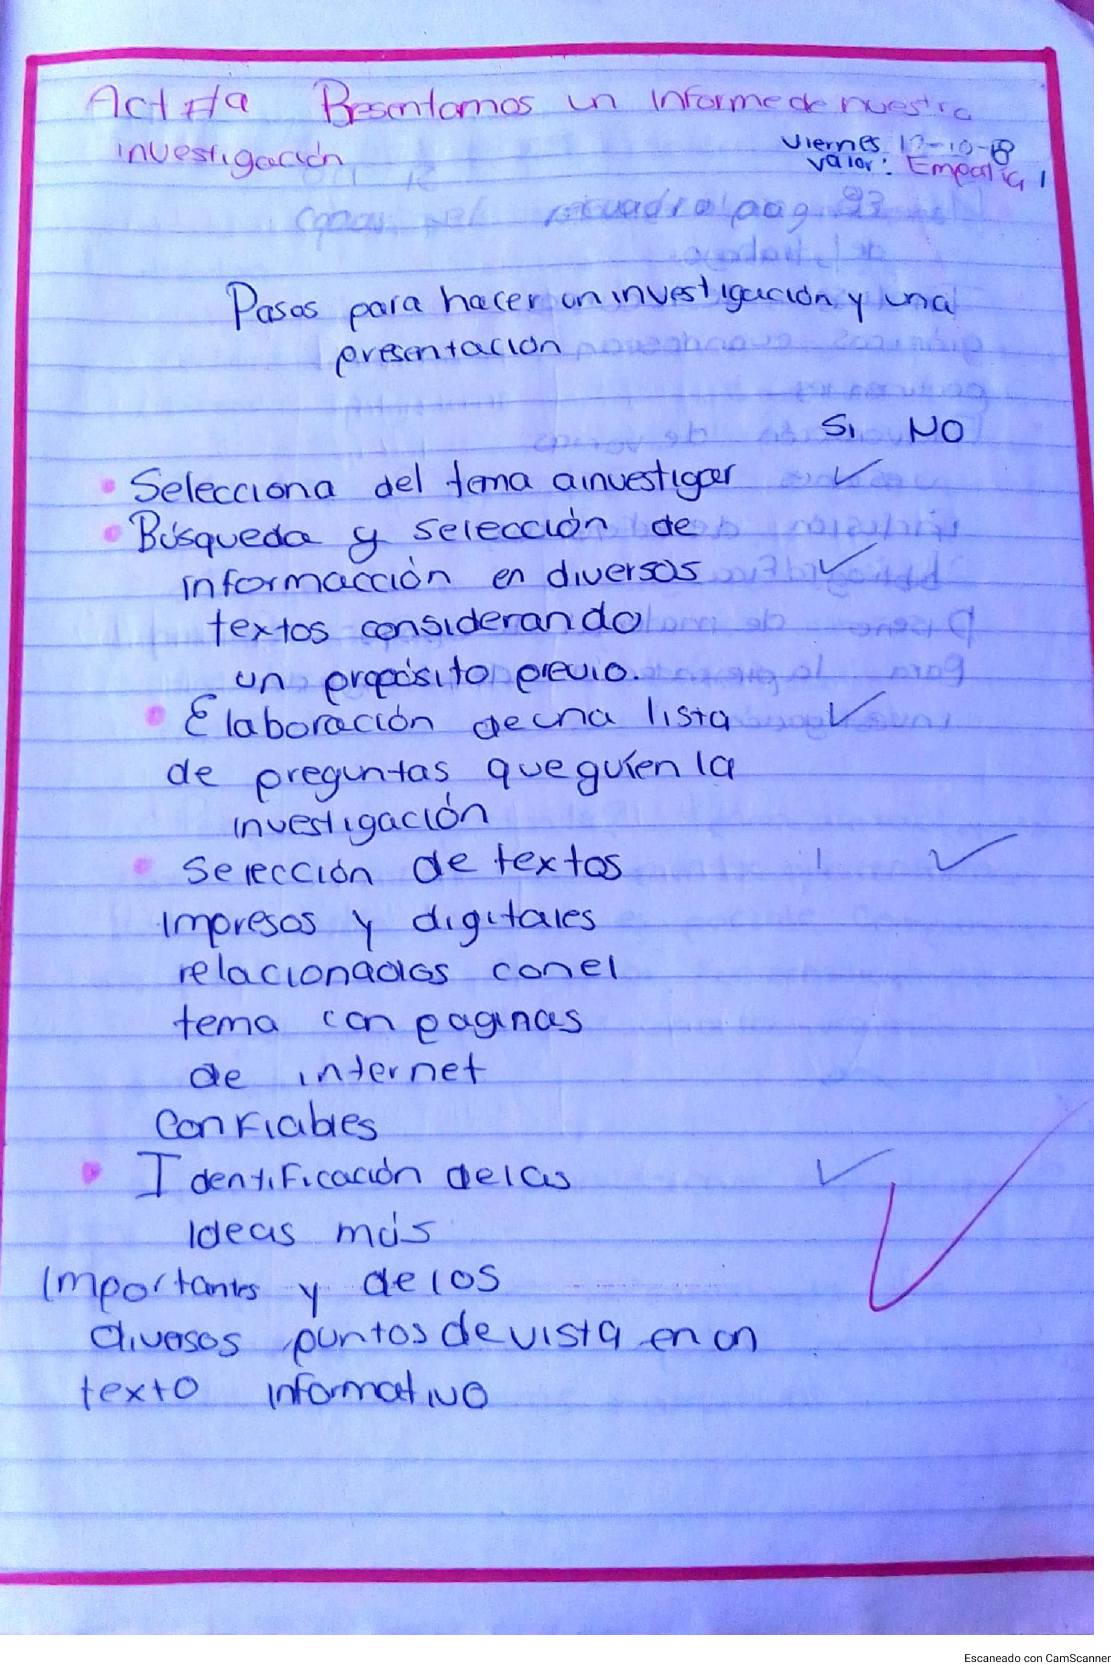 Act #9 Presentamos un informe de nuestra
investigación
Viernes 12-10-18
valor: Empatía
Pasos para hacer un investigación y una
presentación
Si NO
Selecciona del tema a investigar
Búsqueda y selección de
informacción en diversos
textos considerando
un propósito previo.
Elaboración de una lista
de preguntas que guíen la
investigación
Selección de textos
Impresos y digitales
relacionados con el
tema con paginas
de internet
Confiables
Identificación de las
Ideas más
Importantes y de los
diversos puntos de vista en un
texto informativo
Escaneado con CamScanner